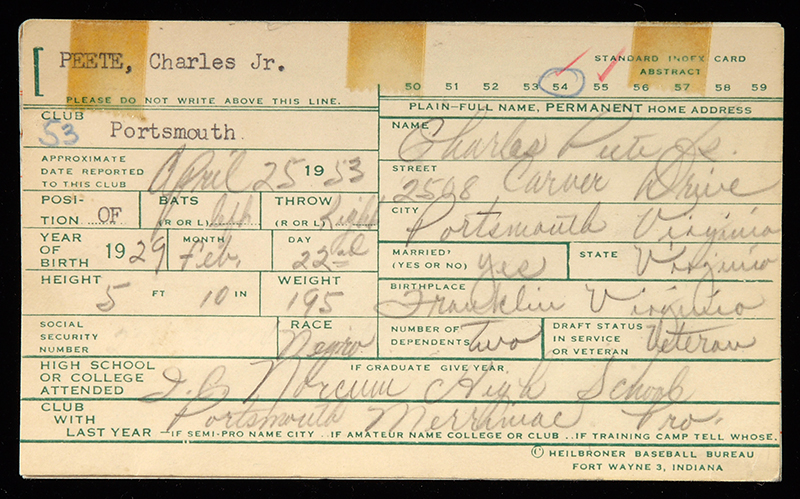 PEETE, Charles Jr.
STANDARD INDEX CARD
ABSTRACT
50 51 52 53 54 55 56 57 58 59
PLEASE DO NOT WRITE ABOVE THIS LINE.
PLAIN-FULL NAME, PERMANENT HOME ADDRESS
CLUB
53 Portsmouth
NAME
Charles Peete Jr.
APPROXIMATE
DATE REPORTED
TO THIS CLUB
April 25 1953
STREET
2508 Carver Drive
POSI-
TION OF
BATS
(R OR L) left
THROW
(R OR L) Right
CITY
Portsmouth Virginia
YEAR
OF
BIRTH
1929
MONTH
Feb.
DAY
22nd
MARRIED?
(YES OR NO) yes
STATE
Virginia
HEIGHT
5 FT 10 IN
WEIGHT
195
BIRTHPLACE
Franklin Virginia
SOCIAL
SECURITY
NUMBER
RACE
Negro
NUMBER OF
DEPENDENTS two
DRAFT STATUS
IN SERVICE
OR VETERAN Veteran
HIGH SCHOOL
OR COLLEGE
ATTENDED
IF GRADUATE GIVE YEAR
I.C. Norcum High School
CLUB
WITH
LAST YEAR
Portsmouth Merrimac Pro.
—IF SEMI-PRO NAME CITY ..IF AMATEUR NAME COLLEGE OR CLUB ..IF TRAINING CAMP TELL WHOSE.
© HEILBRONER BASEBALL BUREAU
FORT WAYNE 3, INDIANA